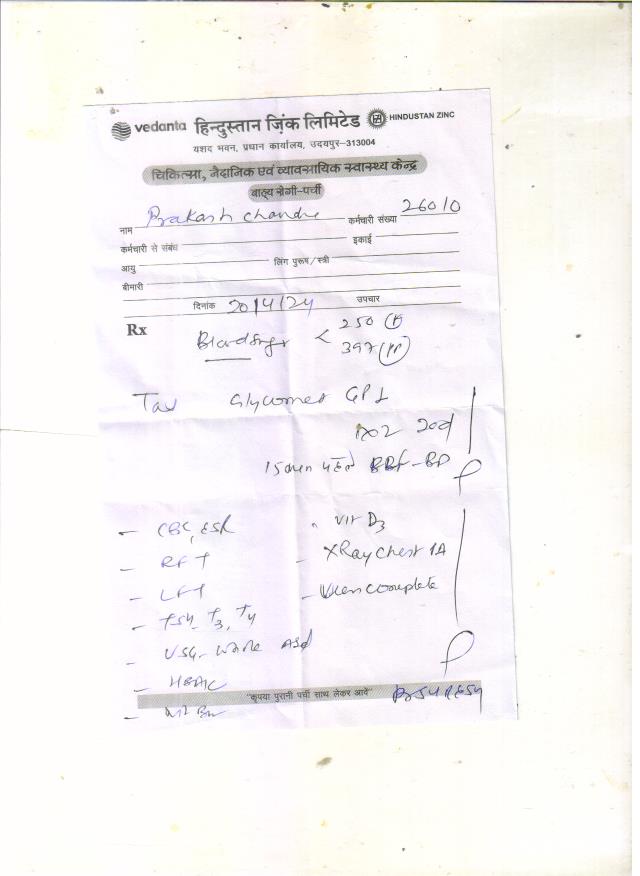 vedanta हिन्दुस्तान ज़िंक लिमिटेड HINDUSTAN ZINC
यशद भवन, प्रधान कार्यालय, उदयपुर–313004
चिकित्सा, नैदानिक एवं व्यावसायिक स्वास्थ्य केन्द्र
बाह्य रोगी-पर्ची
नाम Prakash Chandra कर्मचारी संख्या 26010
कर्मचारी से संबंध इकाई
आयु लिंग पुरूष/स्त्री
बीमारी
दिनांक 20/4/24 उपचार
Rx
Blood Sugar < 250 (F)
397 (PP)
Tab Glycomet GP 1
1x2 20d
15 min पहले
- CBC, ESR
Vit D3
- RFT
- X Ray Chest PA
- LFT
- Urien Complete
- TSH, T3, T4
- USG - Whole Abd
- HbA1C
"कृपया पुरानी पर्ची साथ लेकर आवें"